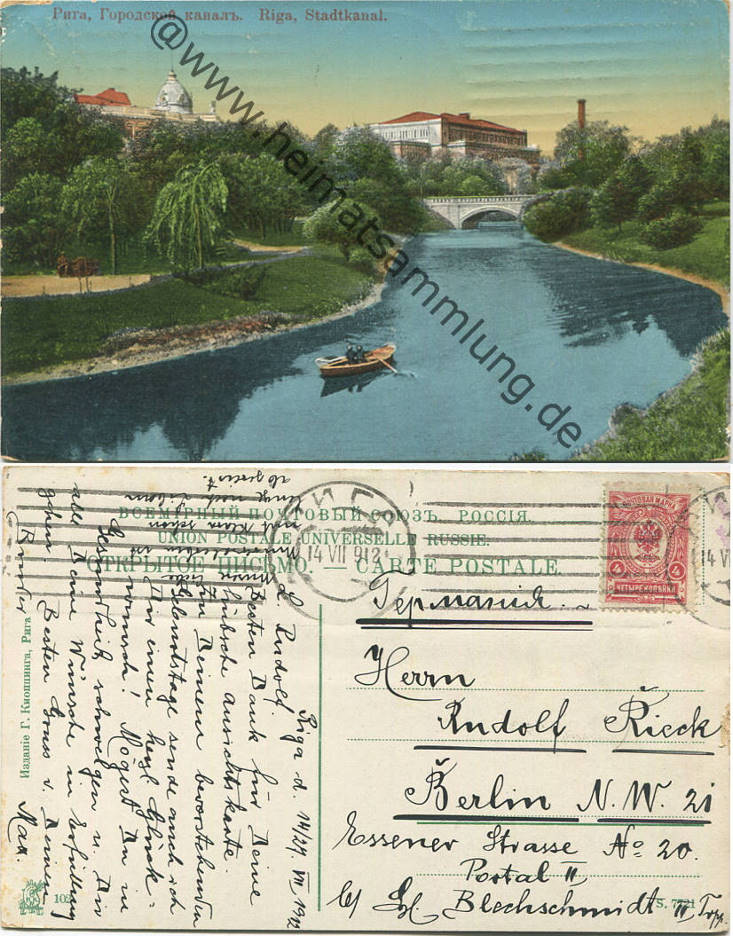 Рига, Городской каналъ. Riga, Stadtkanal.
@www.heimatsammlung.de
ВСЕМІРНЫЙ ПОЧТОВЫЙ СОЮЗЪ. РОССІЯ.
UNION POSTALE UNIVERSELLE RUSSIE.
ОТКРЫТОЕ ПИСЬМО. — CARTE POSTALE.
14 VII 912
ПОЧТОВАЯ МАРКА
4 4
ЧЕТЫРЕ КОПѢЙКИ
14 VII
Германия.
Herrn
Rudolf Rieck
Berlin N.W. 21
Essener Strasse No 20.
Portal II
b/ Blechschmidt II Trp.
S. 7721
Riga d. 14/27 VII 1912
L. Rudolf.
Besten Dank für Deine
hübsche Ansichtskarte.
Zu Deinem bevorstehenden
Geburtstage sende auch ich
Dir einen herzl. Glück=
wunsch! Mögest Du in
Gesundheit schwelgen u. Dir
alle Deine Wünsche in Erfüllung
gehen. Besten Gruss v. Deinem
Bruder Max.
abgereist.
Изданіе Г. Кноппинга, Рига